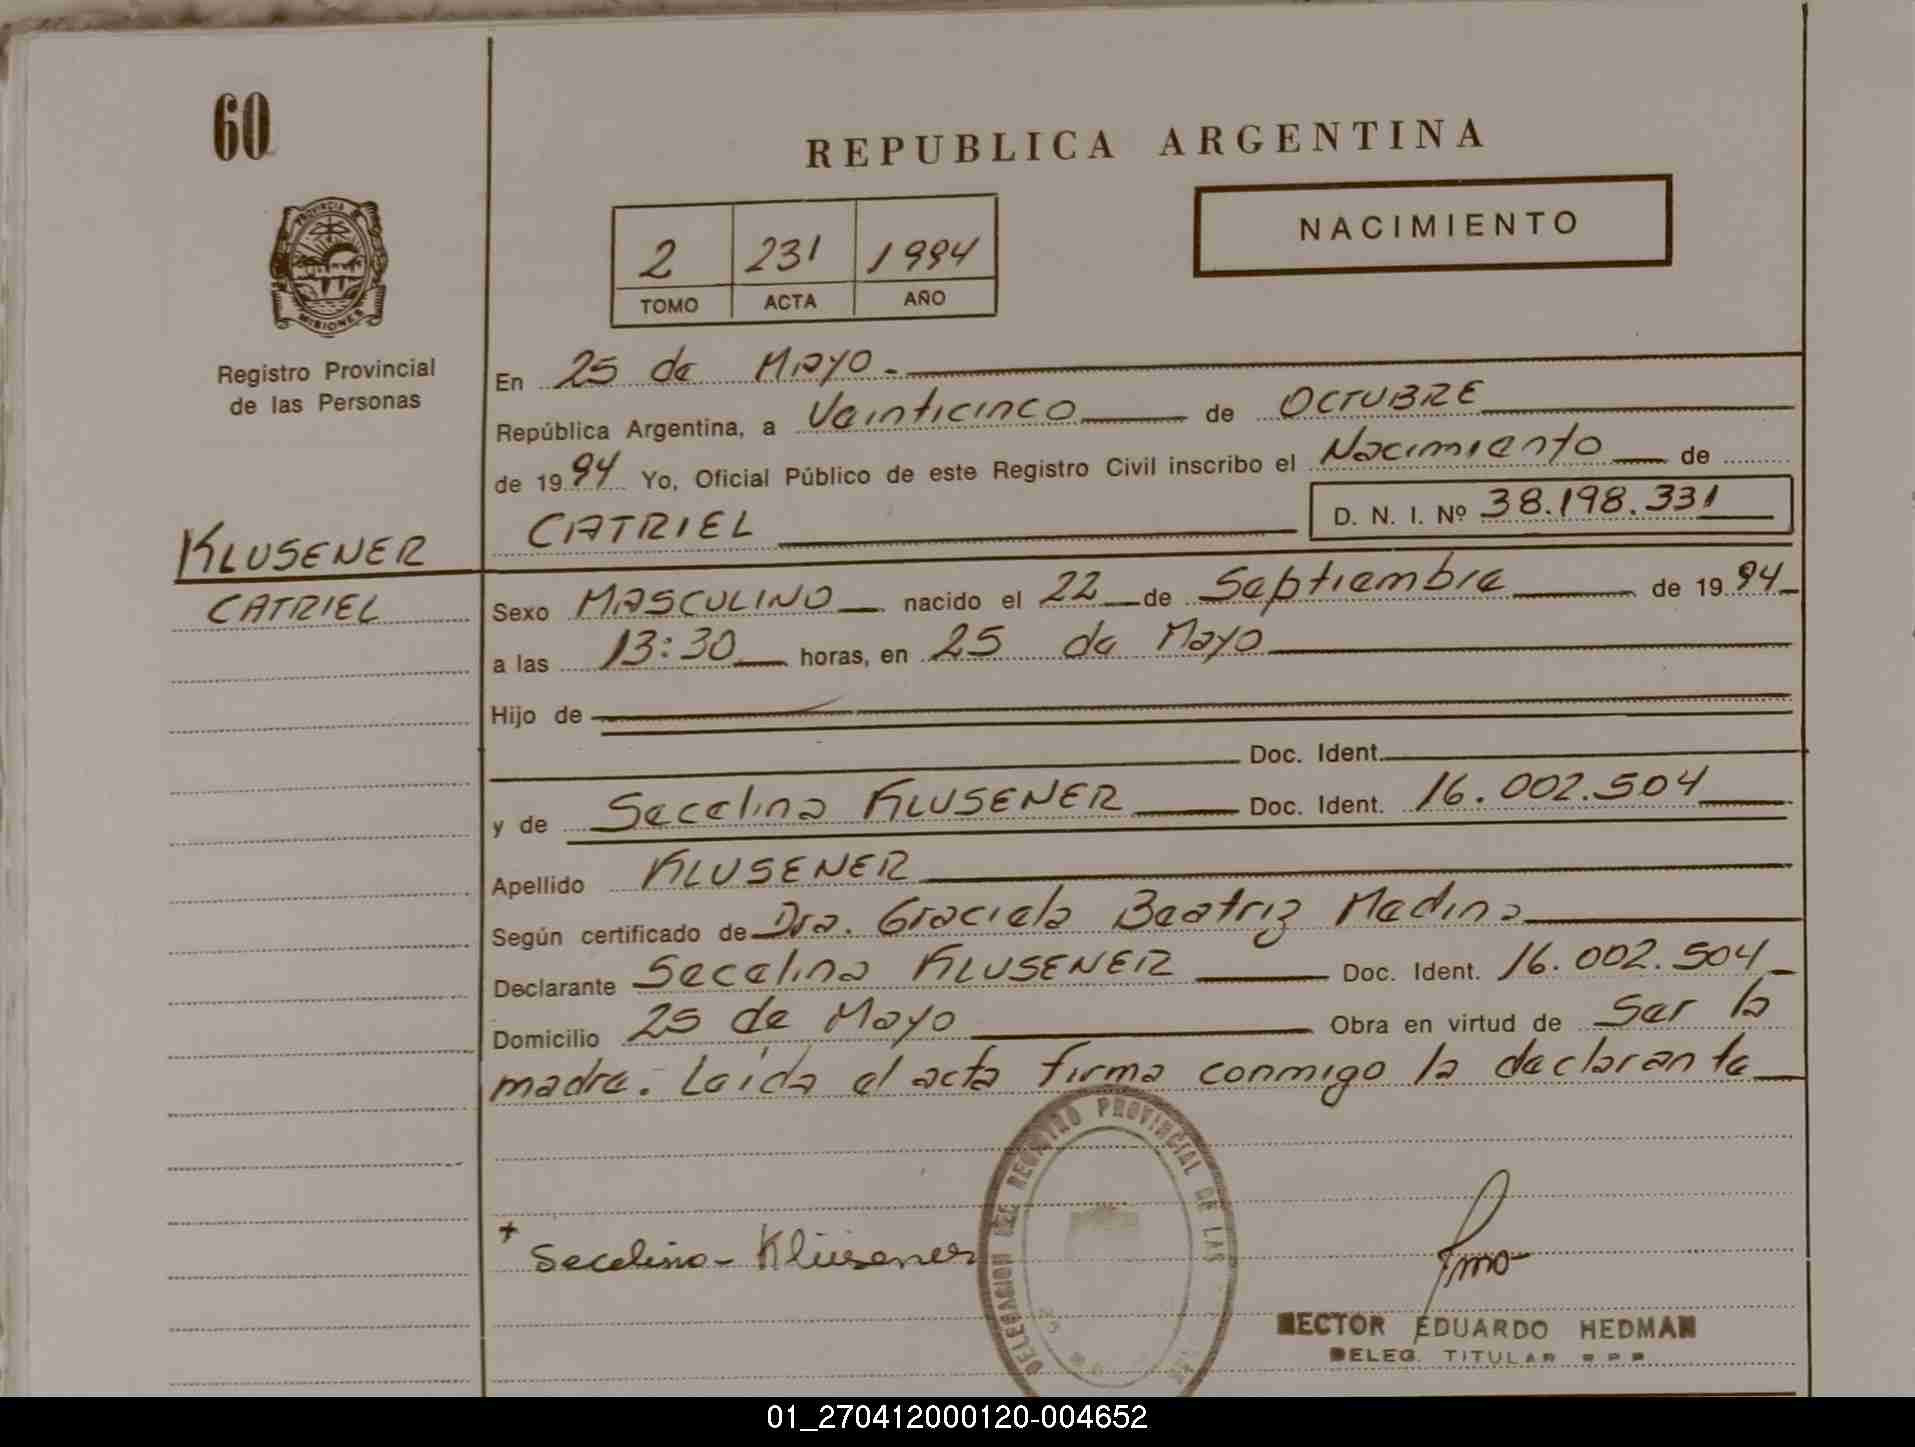 60
REPUBLICA ARGENTINA
NACIMIENTO
2 231 1994
TOMO ACTA AÑO
PROVINCIA DE
MISIONES
Registro Provincial
de las Personas
En 25 de Mayo.-
República Argentina, a Veinticinco de OCTUBRE
de 1994 Yo, Oficial Público de este Registro Civil inscribo el Nacimiento de
CATRIEL D. N. I. Nº 38.198.331
KLUSENER
CATRIEL
Sexo MASCULINO nacido el 22 de Septiembre de 1994
a las 13:30 horas, en 25 de Mayo
Hijo de
Doc. Ident.
y de Secelina KLUSENER Doc. Ident. 16.002.504
Apellido KLUSENER
Según certificado de Dra. Graciela Beatriz Medina
Declarante Secelina KLUSENER Doc. Ident. 16.002.504
Domicilio 25 de Mayo Obra en virtud de Ser la
madre. Leída el acta firma conmigo la declarante
DELEGACION DEL REGISTRO PROVINCIAL DE LAS
+ Secelina - Klüsener
HECTOR EDUARDO HEDMAN
DELEG. TITULAR R P P
01_270412000120-004652